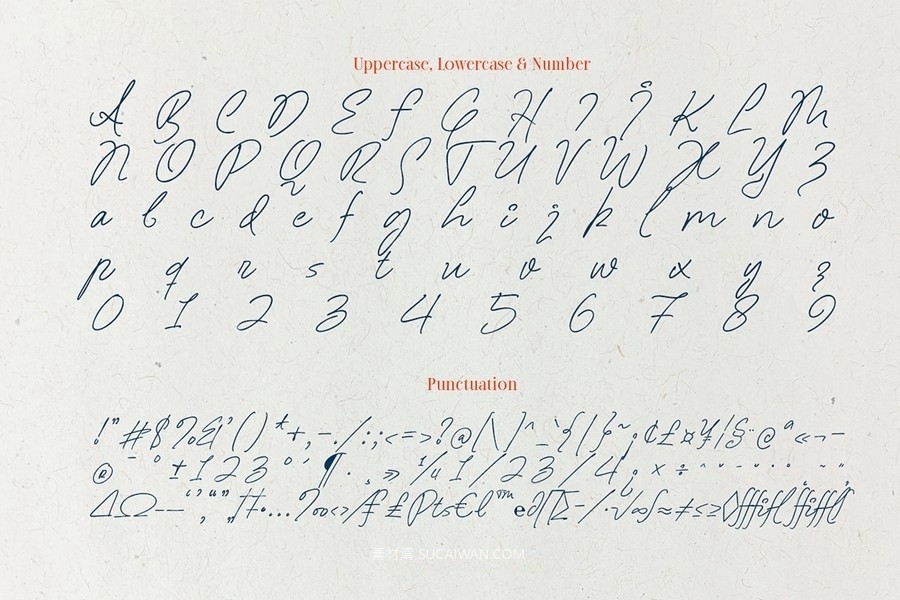 Uppercase, Lowercase & Number
A B C D E F G H I J K L M
N O P Q R S T U V W X Y Z
a b c d e f g h i j k l m n o
p q r s t u v w x y z
0 1 2 3 4 5 6 7 8 9
Punctuation
!"#$%&'()*+,-./:;<=>?@[\]^_`{|}~¡¢£¤¥¦§¨©ª«¬-
®¯°±123´µ¶·¸»¼1/23/4¿×÷
ΔΩ–—‘’‚“”„†•…‰‹›⁄₣₤₧€ℓ™℮∂∏∑−∕∙√∞∫≈≠≤≥◊
素材湾 SUCAIWAN.COM